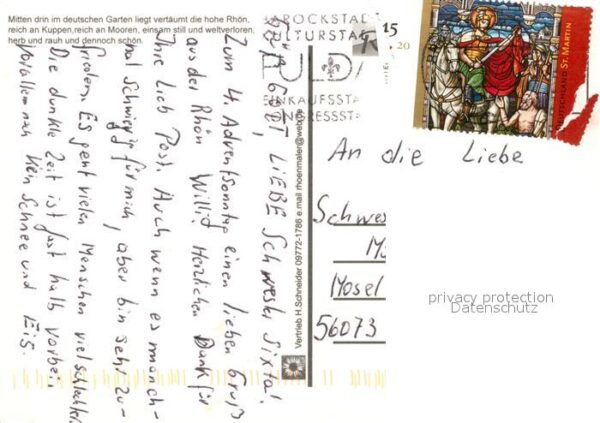 Mitten drin im deutschen Garten liegt vertäumt die hohe Rhön,
reich an Kuppen,reich an Mooren, einsam still und weltverloren,
herb und rauh und dennoch schön.
GRÜß GOTT, LIEBE Schwester Sixta!
Zum 4. Adventsonntag einen lieben Gruß
aus der Rhön. Will Herzlichen Dank für
Ihre Lieb Post. Auch wenn es manch-
mal Schwierig für mich, aber bin sehr zu-
frieden. Es geht vielen Menschen viel schlechter.
Die dunkle Zeit ist fast halb vorbei.
Vorallem nah kein Schnee und EIS.
Vertrieb H.Schneider 09772-1786 e.mail rhoenmaler@web.de
BAROCKSTADT
KULTURSTA
FULDA
EINKAUFSSTA
KONGRESSST
15
20
DEUTSCHLAND ST. MARTIN
An die Liebe
Schwes
Mosel
56073
privacy protection
Datenschutz